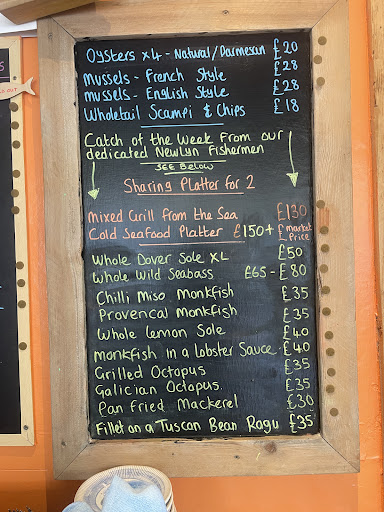 Oysters x4 - Natural/Parmesan £20
Mussels - French Style £28
Mussels - English Style £28
Wholetail Scampi & Chips £18
Catch of the Week From our
dedicated Newlyn Fishermen
SEE Below
Sharing Platter for 2
Mixed Grill from the Sea £130
Cold Seafood Platter £150+ £ market Price
Whole Dover Sole XL £50
Whole Wild Seabass £65 - £80
Chilli Miso Monkfish £35
Provencal Monkfish £35
Whole Lemon Sole £40
Monkfish in a Lobster Sauce £40
Grilled Octopus £35
Galician Octopus £35
Pan Fried Mackerel £30
Fillet on a Tuscan Bean Ragu £35